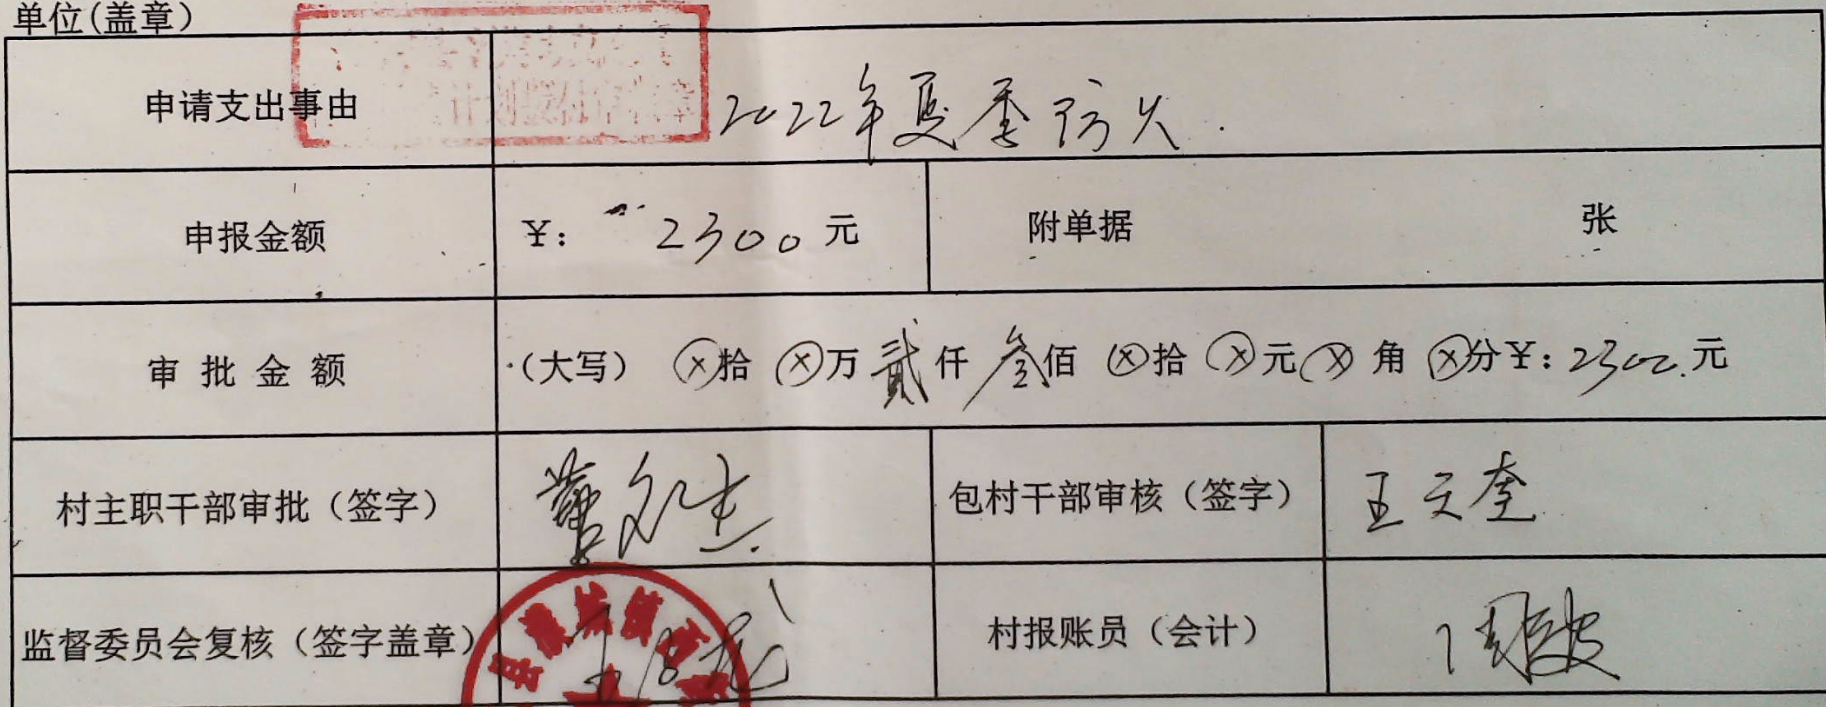 单位(盖章)
申请支出事由 2022年夏季防火.
申报金额 ¥: 2300元 附单据 张
审批金额 (大写) ⓧ拾ⓧ万贰仟叁佰ⓧ拾ⓧ元ⓧ角ⓧ分¥:2300.元
村主职干部审批(签字) 包村干部审核(签字) 王天奎
监督委员会复核(签字盖章) 村报账员(会计)